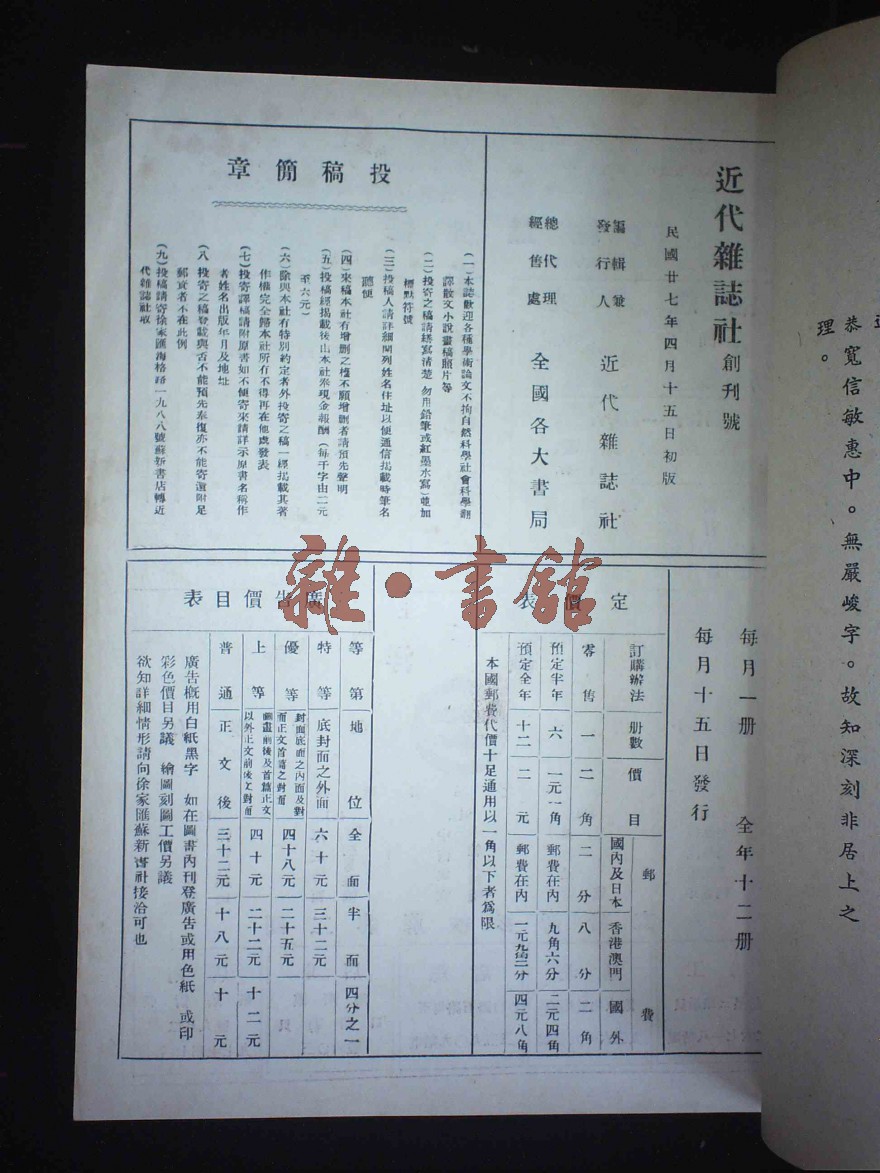 恭寬信敏惠中。無嚴峻字。故知深刻非居上之
理。
近代雜誌社創刊號
民國廿七年四月十五日初版
編輯兼發行人 近代雜誌社
總代理經售處 全國各大書局
投稿簡章
(一)本誌歡迎各種學術論文不拘自然科學社會科學翻
譯散文小說畫稿照片等
(二)投寄之稿請繕寫清楚 勿用鉛筆或紅墨水寫)並加
標點符號
(三)投稿人請詳細開列姓名住址以便通信揭載時筆名
聽便
(四)來稿本社有增删之權不願增删者請預先聲明
(五)投稿經揭載後由本社奉現金報酬(每千字由二元
至六元)
(六)除與本社有特別約定者外投寄之稿一經揭載其著
作權完全歸本社所有不得再在他處發表
(七)投寄譯稿請附原書如不便寄來請詳示原書名稱作
者姓名出版年月及地址
(八 投寄之稿登載與否不能預先奉復亦不能寄還附足
郵資者不在此例
(九)投稿請寄徐家匯海格路一九八八號蘇新書店轉近
代雜誌社收
每月一册 全年十二册
每月十五日發行
定價表
訂購辦法 册數 價目 郵費 國內及日本 香港澳門 國外
零售 一 二角 二分 八分 二角
預定半年 六 一元一角 郵費在內 九角六分 二元四角
預定全年 十二 二元 郵費在內 一元九角二分 四元八角
本國郵費代價十足通用以一角以下者為限
廣告價目表
等第 地位 全面 半面 四分之一
特等 底封面之外面 六十元 三十二元
優等 封面底面之內面及對面正文首篇之對面 四十八元 二十五元
上等 圖畫前後及首篇正文以外正文前後之對面 四十元 二十二元 十二元
普通 正文後 三十二元 十八元 十元
廣告概用白紙黑字 如在圖書內刊登廣告或用色紙 或印
彩色價目另議 繪圖刻圖工價另議
欲知詳細情形請向徐家匯蘇新書社接洽可也
雜·書館